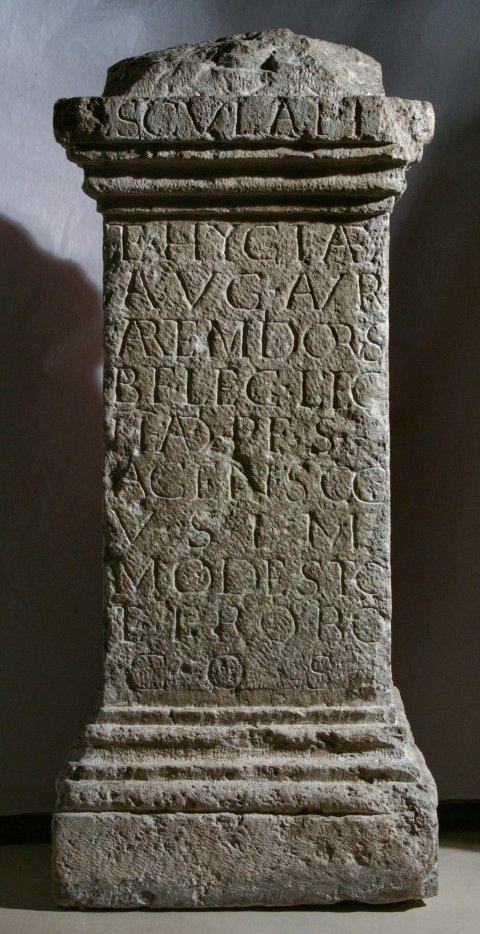 SCVLAPI
E HYGIAE
AVG AVR
AREMDORVS
BF LEG II C
ITA
AGENS C C
VS IM
MODESTO
E PROBO
COS